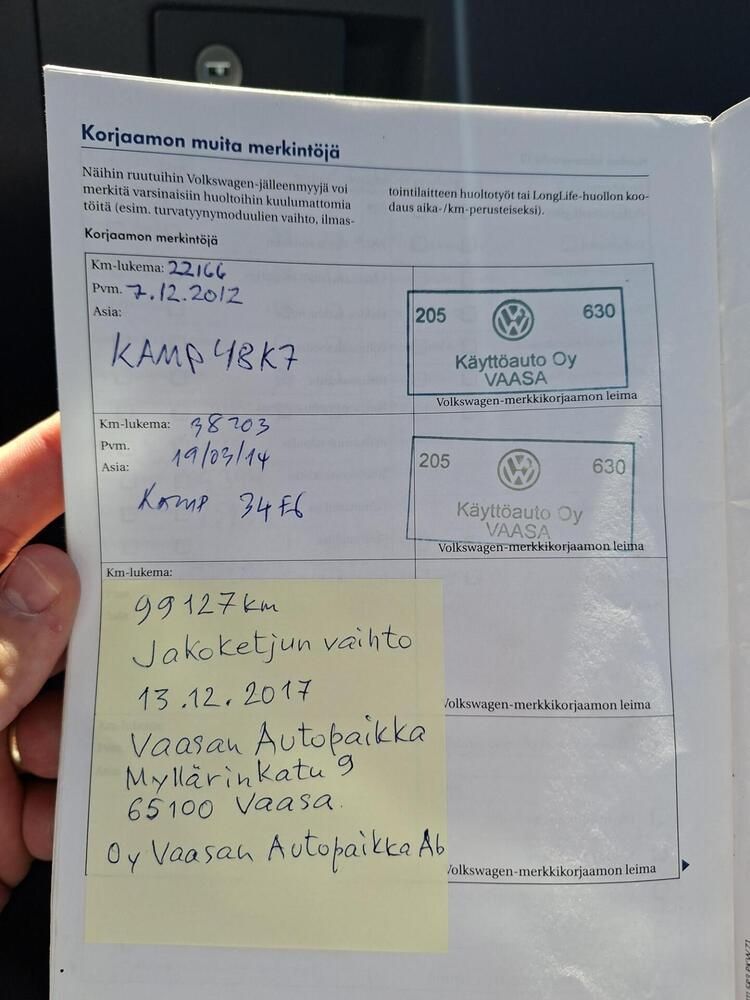 Korjaamon muita merkintöjä
Näihin ruutuihin Volkswagen-jälleenmyyjä voi
merkitä varsinaisiin huoltoihin kuulumattomia
töitä (esim. turvatyynymoduulien vaihto, ilmas-
tointilaitteen huoltotyöt tai LongLife-huollon koo-
daus aika-/km-perusteiseksi).
Korjaamon merkintöjä
Km-lukema: 22166
Pvm. 7.12.2012
Asia:
KAMP 48K7
205 630
Käyttöauto Oy
VAASA
Volkswagen-merkkikorjaamon leima
Km-lukema: 38203
Pvm. 19/03/14
Asia:
KAMP 34F6
205 630
Käyttöauto Oy
VAASA
Volkswagen-merkkikorjaamon leima
Km-lukema:
99127km
Jakoketjun vaihto
13.12.2017
Vaasan Autopaikka
Myllärinkatu 9
65100 Vaasa.
Oy Vaasan Autopaikka Ab
Volkswagen-merkkikorjaamon leima
Volkswagen-merkkikorjaamon leima